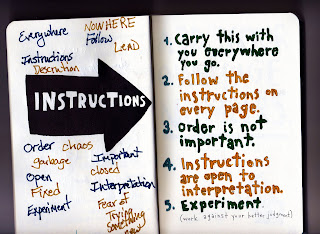 Everywhere NOWHERE
Follow LEAD
Instructions
Discration
INSTRUCTIONS
Order chaos
garbage Important
Open closed
Fixed Interpretation
Experiment Fear of
Trying
Something
new
1. Carry this with
you everywhere
you go.
2. Follow the
instructions on
every page.
3. Order is not
important.
4. Instructions
are open to
interpretation.
5. Experiment.
(work against your better judgment)